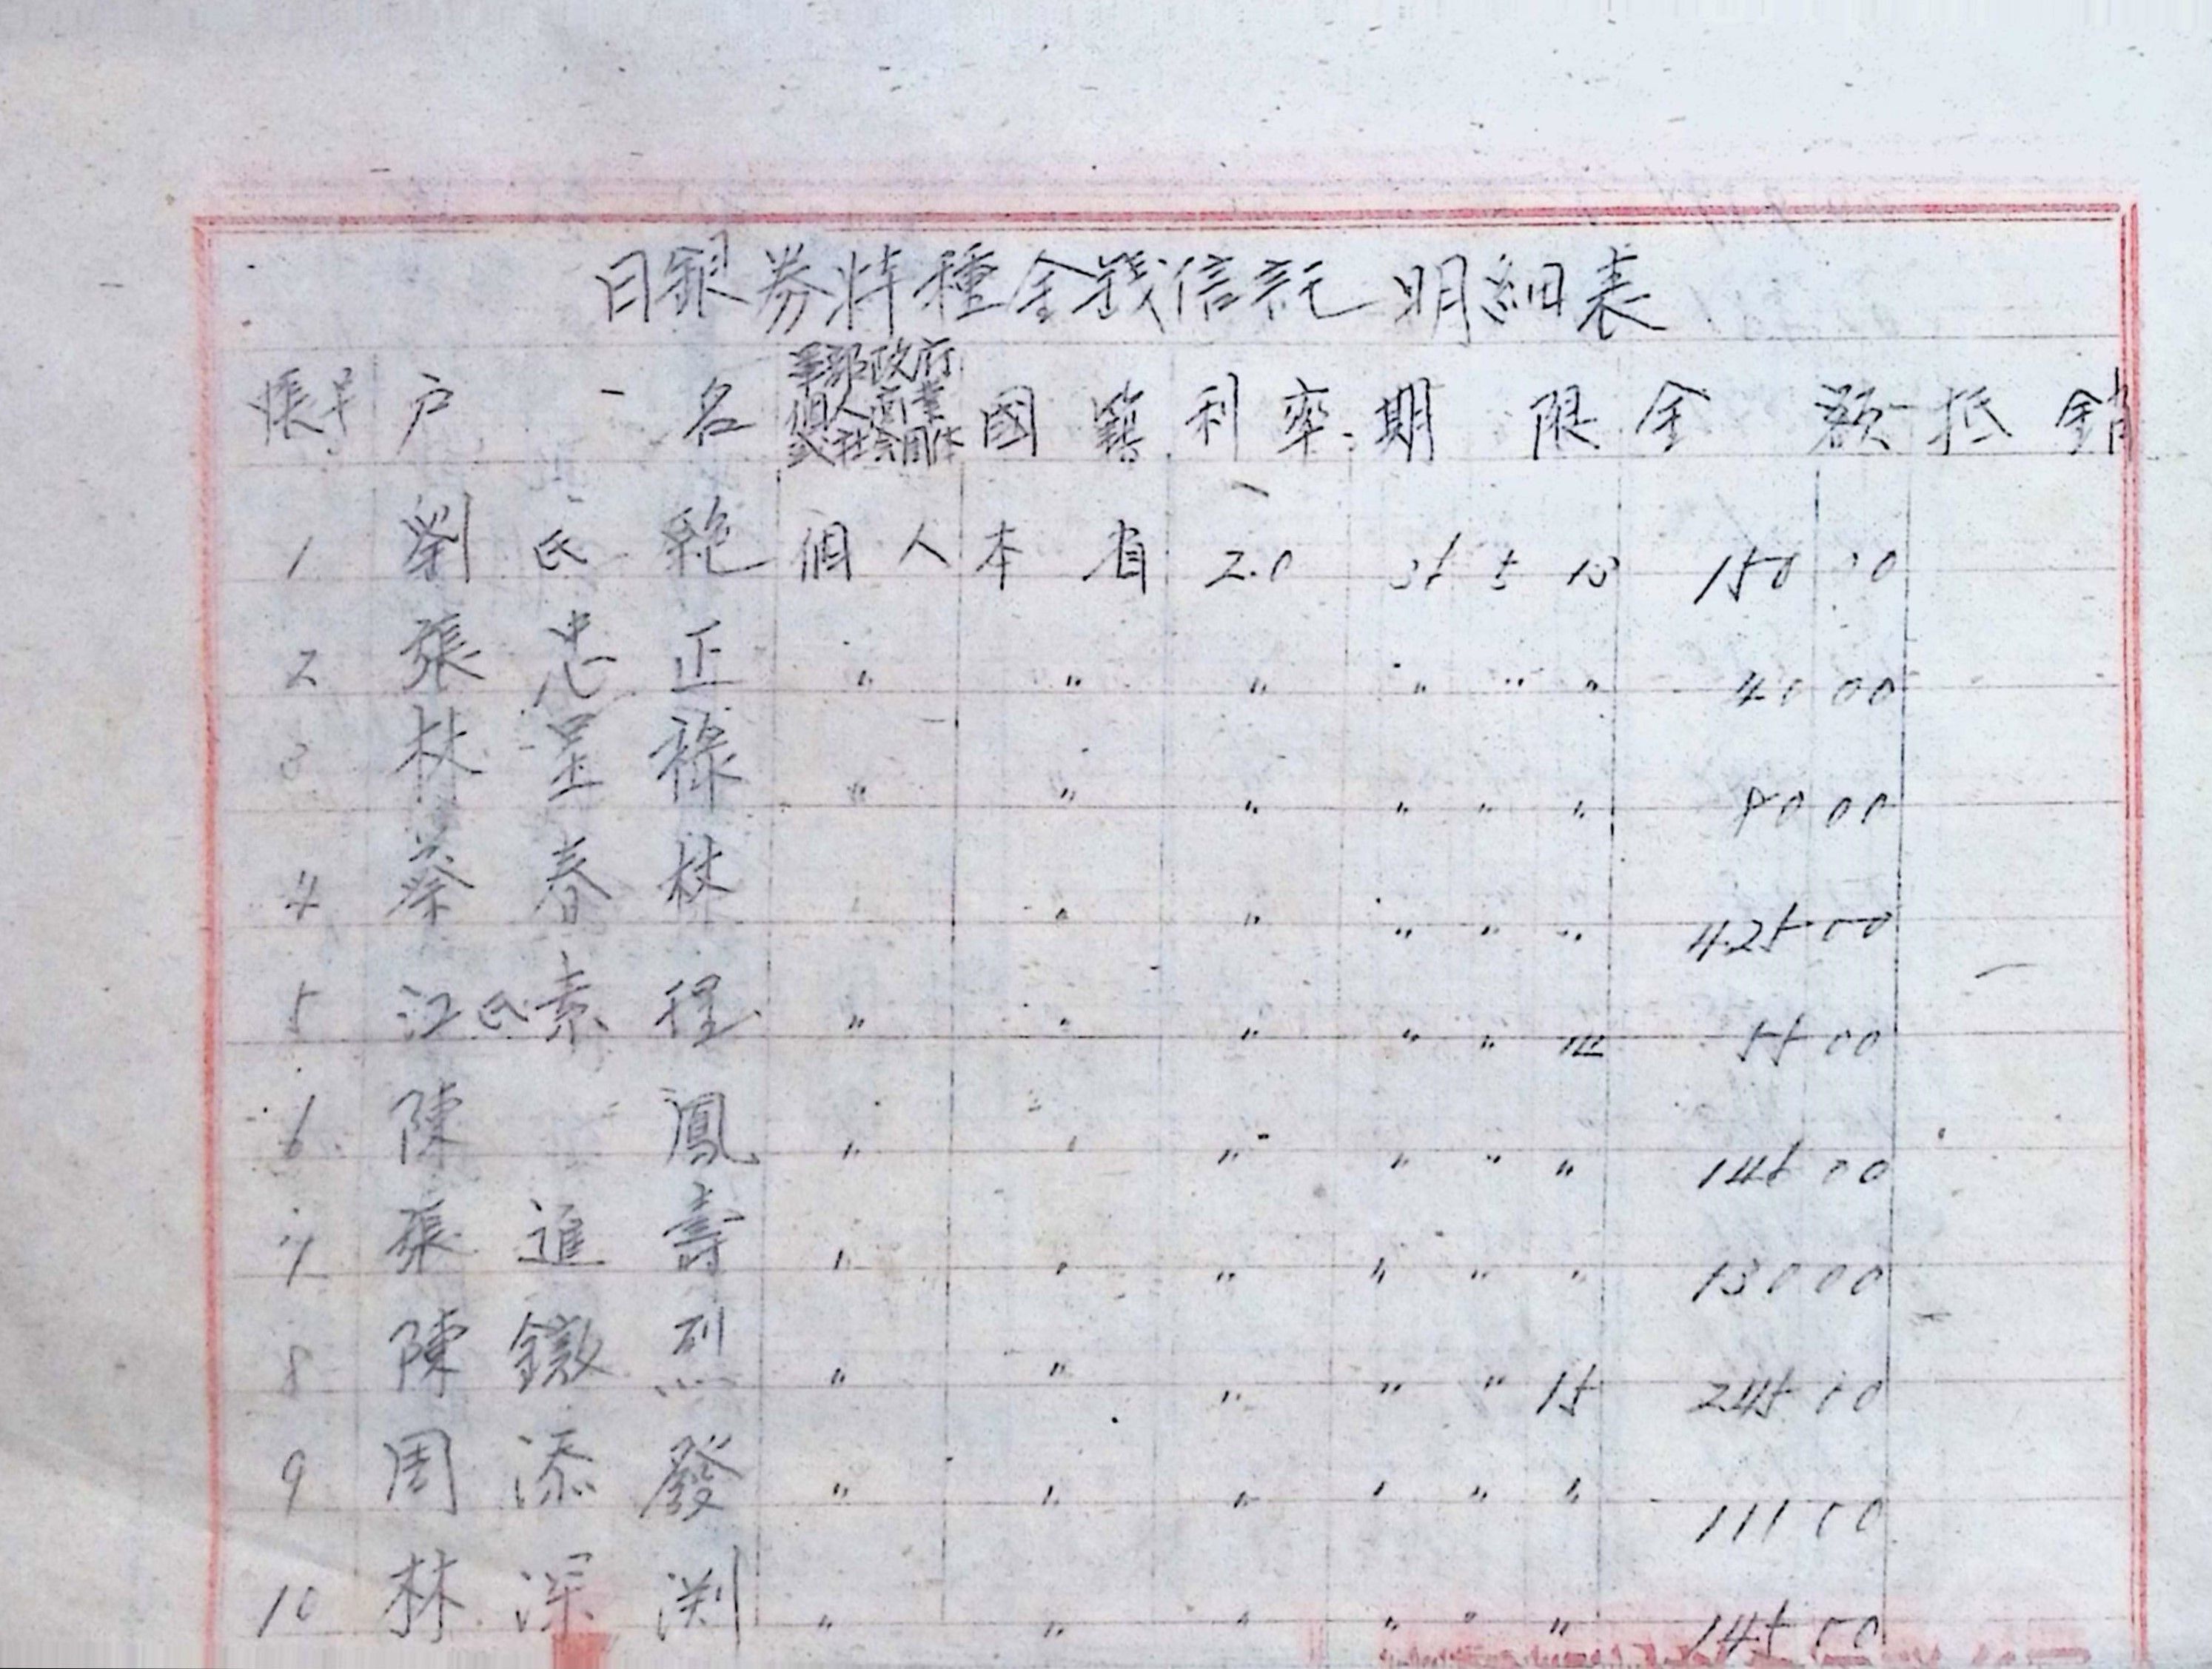 日銀券特種金銭信託 明細表
帳号 户 名 軍部政府個人商業式社会団体 國籍 利率 期限 金額 抵銷
1 劉氏 個人 本省 2.0 5 13 150 00
2 張忠正 〃 〃 〃 〃 〃 〃 40 00
3 林 祿 〃 〃 〃 〃 〃 〃 80 00
4 蔡春林 〃 〃 〃 〃 〃 425 00
5 江氏素程 〃 〃 〃 〃 〃 14 55 00
6 陳鳳 〃 〃 〃 〃 〃 〃 145 00
7 張進壽 〃 〃 〃 〃 〃 〃 130 00
8 陳鐓烈 〃 〃 〃 〃 〃 15 245 00
9 周添發 〃 〃 〃 〃 〃 〃 111 00
10 林深渕 〃 〃 〃 〃 〃 〃 145 00